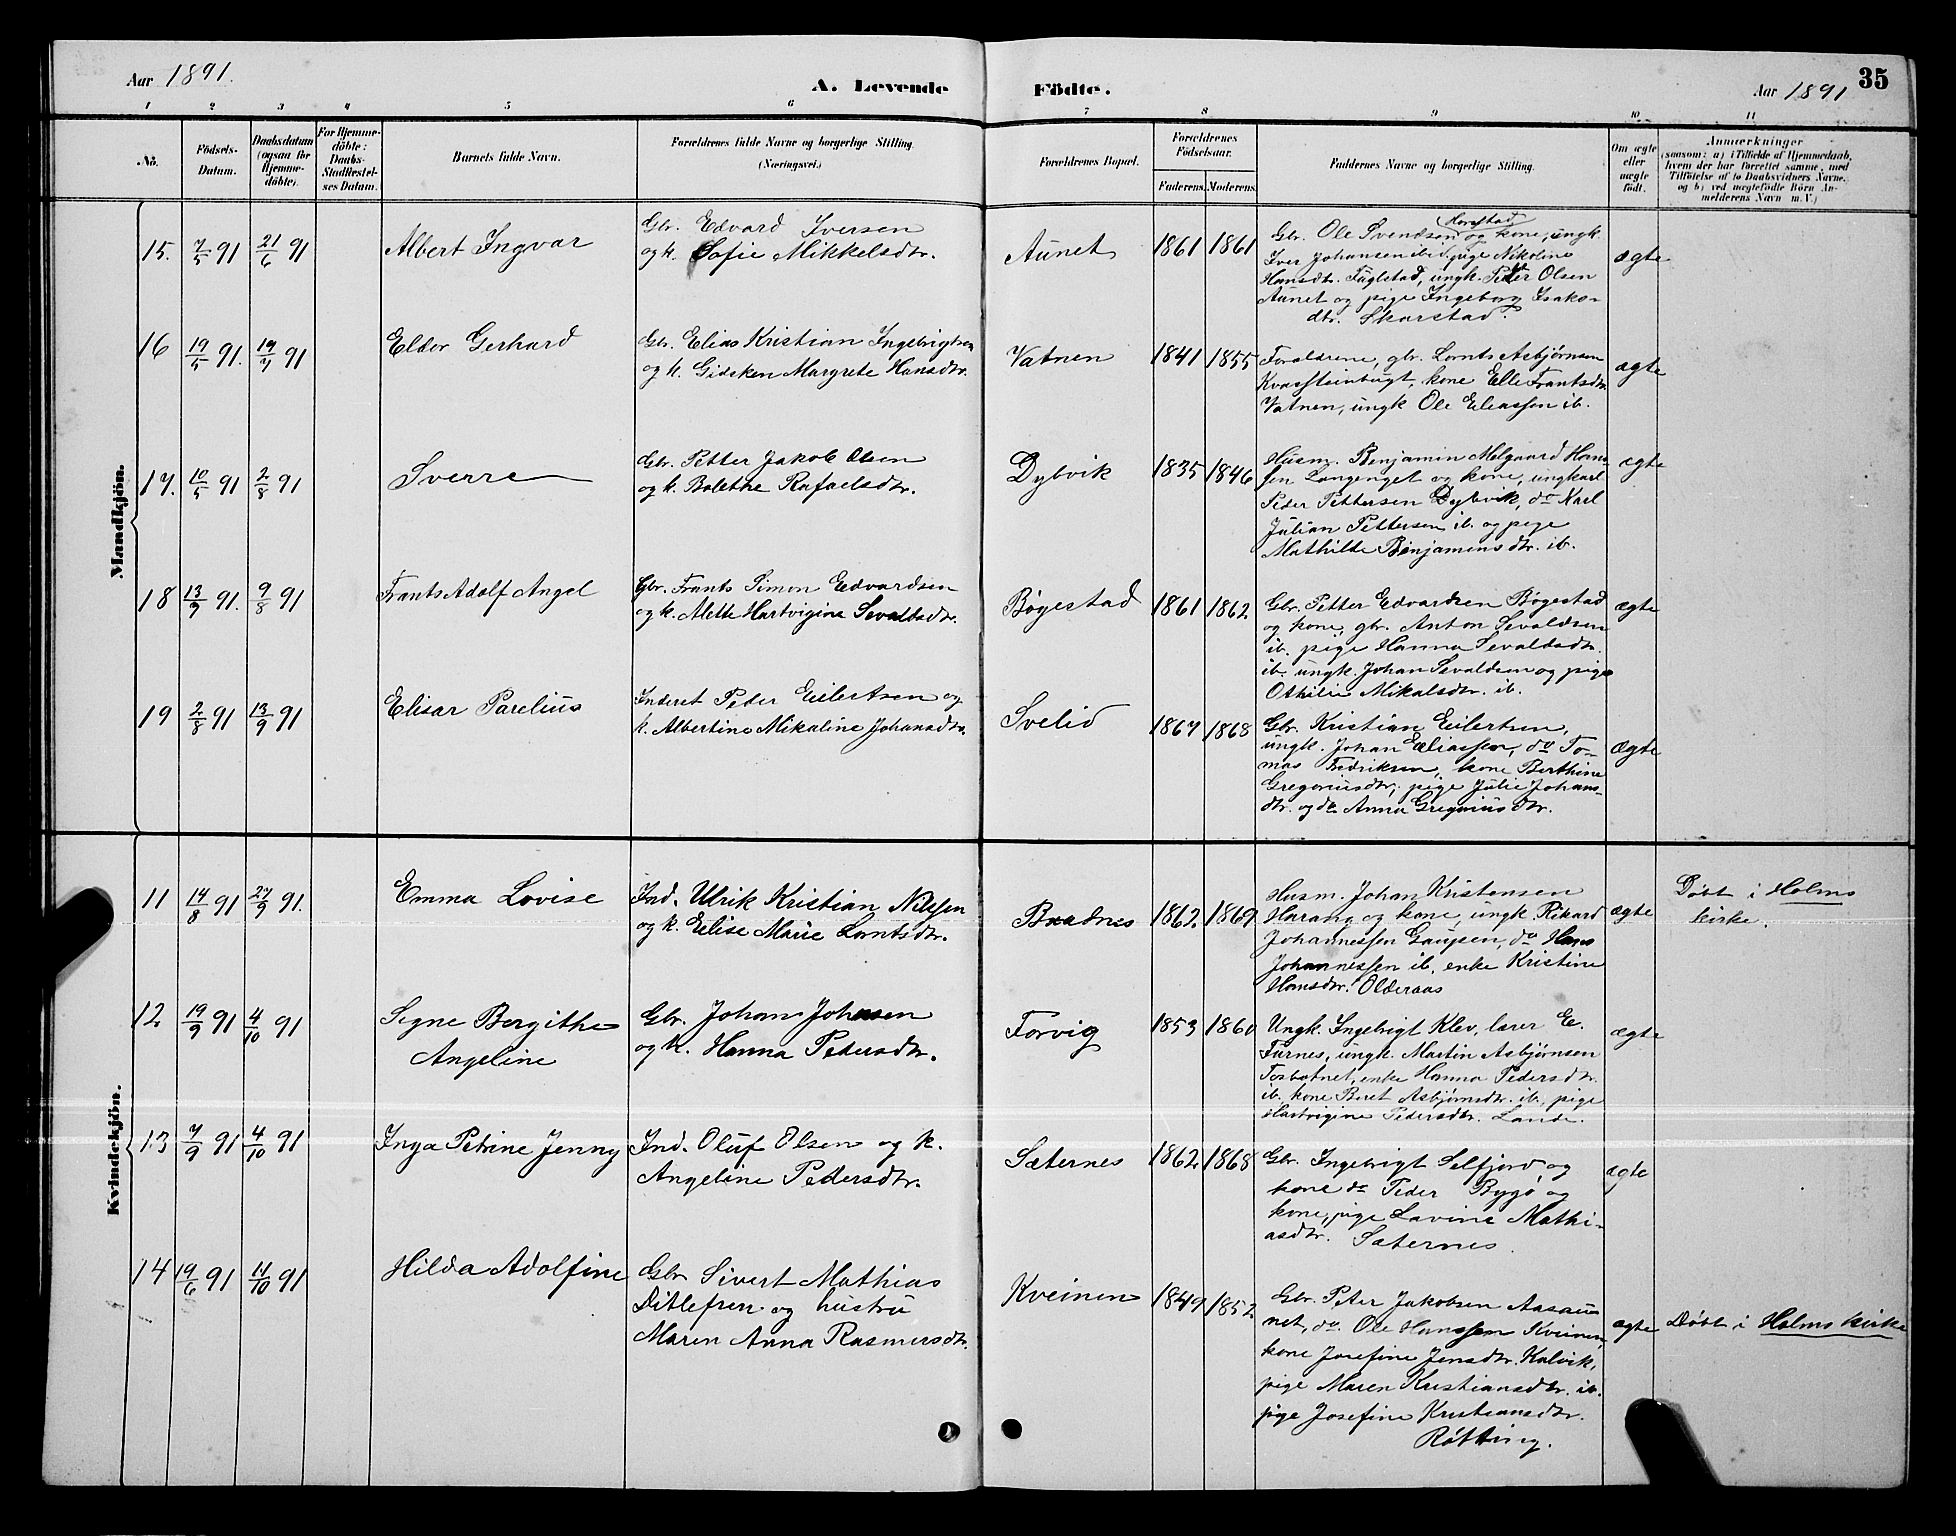 Aar 1891.
A. Levende Födte.
Aar 1891
35
1 2 3 4 5 6 7 8 9 10 11
No.
Födsels-Datum.
Daabsdatum (ogsaa for Hjemme-döbte).
For Hjemme-döbte: Daabs-Stadfæstel-ses Datum.
Barnets fulde Navn.
Forældrenes fulde Navne og borgerlige Stilling. (Næringsvei.)
Forældrenes Bopæl.
Forældrenes Födselsaar.
Faderens. Moderens.
Faddernes Navne og borgerlige Stilling.
Om ægte eller uægte födt.
Anmærkninger
(saasom: a) i Tilfælde af Hjemmedaab, hvem der har forrettet samme, med Tilföielse af to Daabsvidners Navne, og b) ved uægtefödte Börn Anmelderens Navn m. V.)
Mandkjön.
15. 7/5 91 21/6 91 Albert Ingvar
Gbr. Edvard Iversen
og k. Sofie Mikkelsdtr.
Aunet 1861 1861
Gbr. Ole Svendsen Horstad og kone, ungk.
Iver Johansen ibid, pige Nikoline
Hansdtr. Fuglstad, ungk. Peter Olsen
Aunet og pige Ingeborg Isaks-
dtr. Skarstad.
ægte
16 19/5 91. 19/7 91 Eldor Gerhard
Gbr. Elias Kristian Ingebrigtsen
og k. Gidsken Margrete Hansdtr.
Vatnen 1841 1855
Forældrene, gbr. Lornts Asbjørnsen
Kvassteinbugt, kone Elle Frantsdtr.
Vatnen, ungk Ole Eliassen ib.
ægte
17. 10/5 91 2/8 91 Sverre
Gbr. Petter Jakob Olsen
og k. Bolethe Rafaelsdtr.
Dybvik 1835 1846
Husm. Benjamin Melgaard Han-
sen Langenget og kone, ungkarl
Peder Pettersen Dybvik, do Karl
Julian Pettersen ib. og pige
Mathilde Benjaminsdtr. ib.
ægte
18 13/7 91. 9/8 91 Frants Adolf Angel
Gbr. Frants Simon Edvardsen
og k. Alette Hartvigine Sevaldsdtr.
Bøgestad 1861 1862
Gbr. Petter Edvardsen Bøgestad
og kone, gbr. Anton Sevaldsen
ib. pige Hanna Sevaldsdtr.
ib. ungk. Johan Sevaldsen og pige
Othilie Mikalsdtr. ib.
ægte
19 2/8 91 13/9 91 Elisar Parelius
Inderst Peder Eilertsen og
k. Albertine Mikaline Johansdtr.
Svelid 1867 1868
Gbr. Kristian Eilertsen,
ungk. Johan Eliassen, do To-
mas Fredriksen, kone Berthine
Gregoriusdtr, pige Julie Johans-
dtr. og do Anna Gregoriusdtr.
ægte
Kvindekjön.
11 14/8 91 27/9 91. Emma Lovise
Ind. Ulrik Kristian Nilssen
og k. Elise Marie Lorntsdtr.
Bradnes 1862. 1869
Husm. Johan Kristensen
Harang og kone, ungk Rikard
Johannessen Gaupen, do Hans
Johannessen ib, enke Kristine
Hansdtr. Olderaas
ægte
Døbt i Holms
kirke.
12. 19/9 91 4/10 91 Signe Bergithe
Angeline
Gbr. Johan Johnsen
og k. Hanna Pedersdtr.
Forvig 1853 1860
Ungk. Ingebrigt Klev, lærer E.
Furnes, ungk. Martin Asbjørnsen
Tosbotnet, enke Hanna Pedersdtr.
ib. kone Beret Asbjørnsdtr. ib., pige
Hartvigine Pedersdtr. Lande.
ægte
13 7/9 91 4/10 91 Inga Petrine Jenny
Ind. Oluf Olsen og k.
Angeline Pedersdtr.
Sæternes 1862. 1868
Gbr. Ingebrigt Selfjord og
kone do Peder Bygö og
kone, pige Lavine Mathi-
asdtr. Sæternes.
ægte
14 19/6 91 11/10 91 Hilda Adolfine
Gbr Sivert Mathias
Ditlefsen og hustru
Maren Anna Rasmusdtr.
Kveinen 1849 1852.
Gbr. Peter Jakobsen Aasau-
net, do. Ole Hanssen Kveinen,
kone Josefine Jensdtr. Kalvik,
pige Maren Kristiansdtr. ib.
pige Josefine Kristiansdtr.
Røtting.
ægte
Døbt i Holms kirke